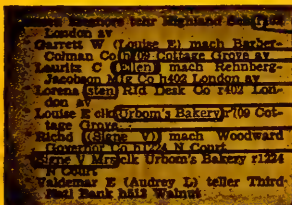 tchr Highland
London av
Garrett W (Louise E) mach Barber-
Colman Co h709 Cottage Grove av
Lauritz C (Ellen) mach Rehnberg-
Jacobson Mfg Co h402 London av
Lorena (sten) Rfd Desk Co r402 Lon-
don av
Louise E clk Urbom's Bakery r709 Cot-
tage Grove
Richd (Signe V) mach Woodward
Governor Co h1224 N Court
Signe V Mrs clk Urbom's Bakery r1224
N Court
Valdemar E (Audrey L) teller Third
Natl Bank h513 Walnut